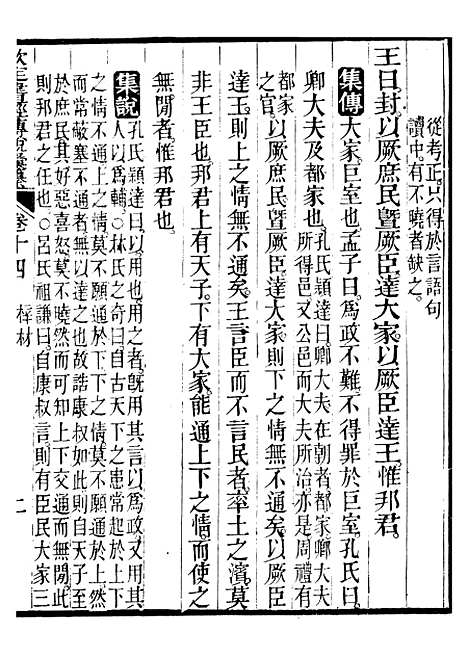 從考正。只得於言語句
讀中。有不曉者缺之。
王曰。封。以厥庶民曁厥臣。達大家。以厥臣達王。惟邦君。
集傳 大家。巨室也。孟子曰。爲政不難。不得罪於巨室。孔氏曰。
卿大夫及都家也。孔氏穎達曰。卿大夫在朝者。都家。卿大夫
所得邑。又公邑而大夫所治亦是。周禮有
都家之官。以厥庶民曁厥臣達大家。則下之情無不通矣。以厥臣
達王。則上之情無不通矣。王言臣而不言民者。率土之濱。莫
非王臣也。邦君上有天子。下有大家。能通上下之情。而使之
無閒者。惟邦君也。
集說 孔氏穎達曰。以。用也。用之者。旣用其言以爲政。又用其
人以爲輔。○林氏之奇曰。自古天下之患。常起於上下
之情不通。上之情莫不願通於下。下之情莫不願通於上。然
而常蔽塞不通者。無以達之也。故誥康叔如此。則自天子至
於庶民。其好惡喜怒。莫不曉然而可知。上下交通而無閒。此
則邦君之任也。○呂氏祖謙曰。自康叔言。則有臣民大家三
欽定書經傳說彙纂 卷十四 梓材 二